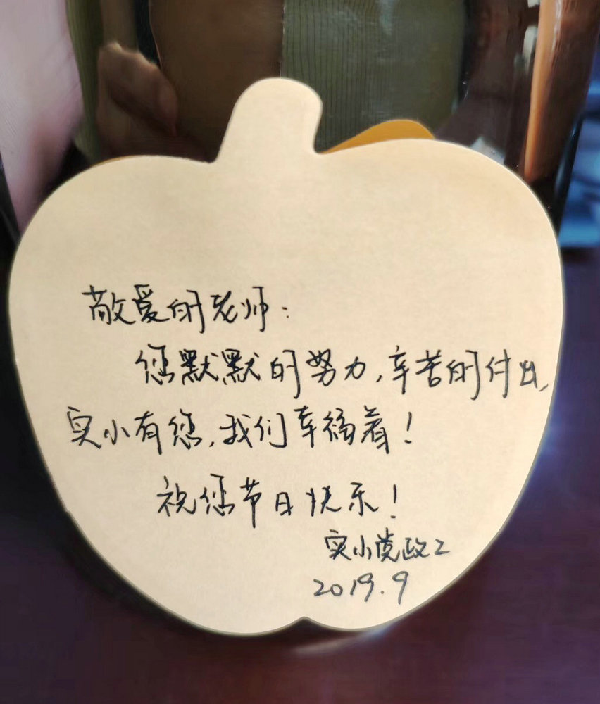 敬爱的老师:
您默默的努力,辛苦的付出,
实小有您,我们幸福着!
祝您节日快乐!
实小党政工
2019.9